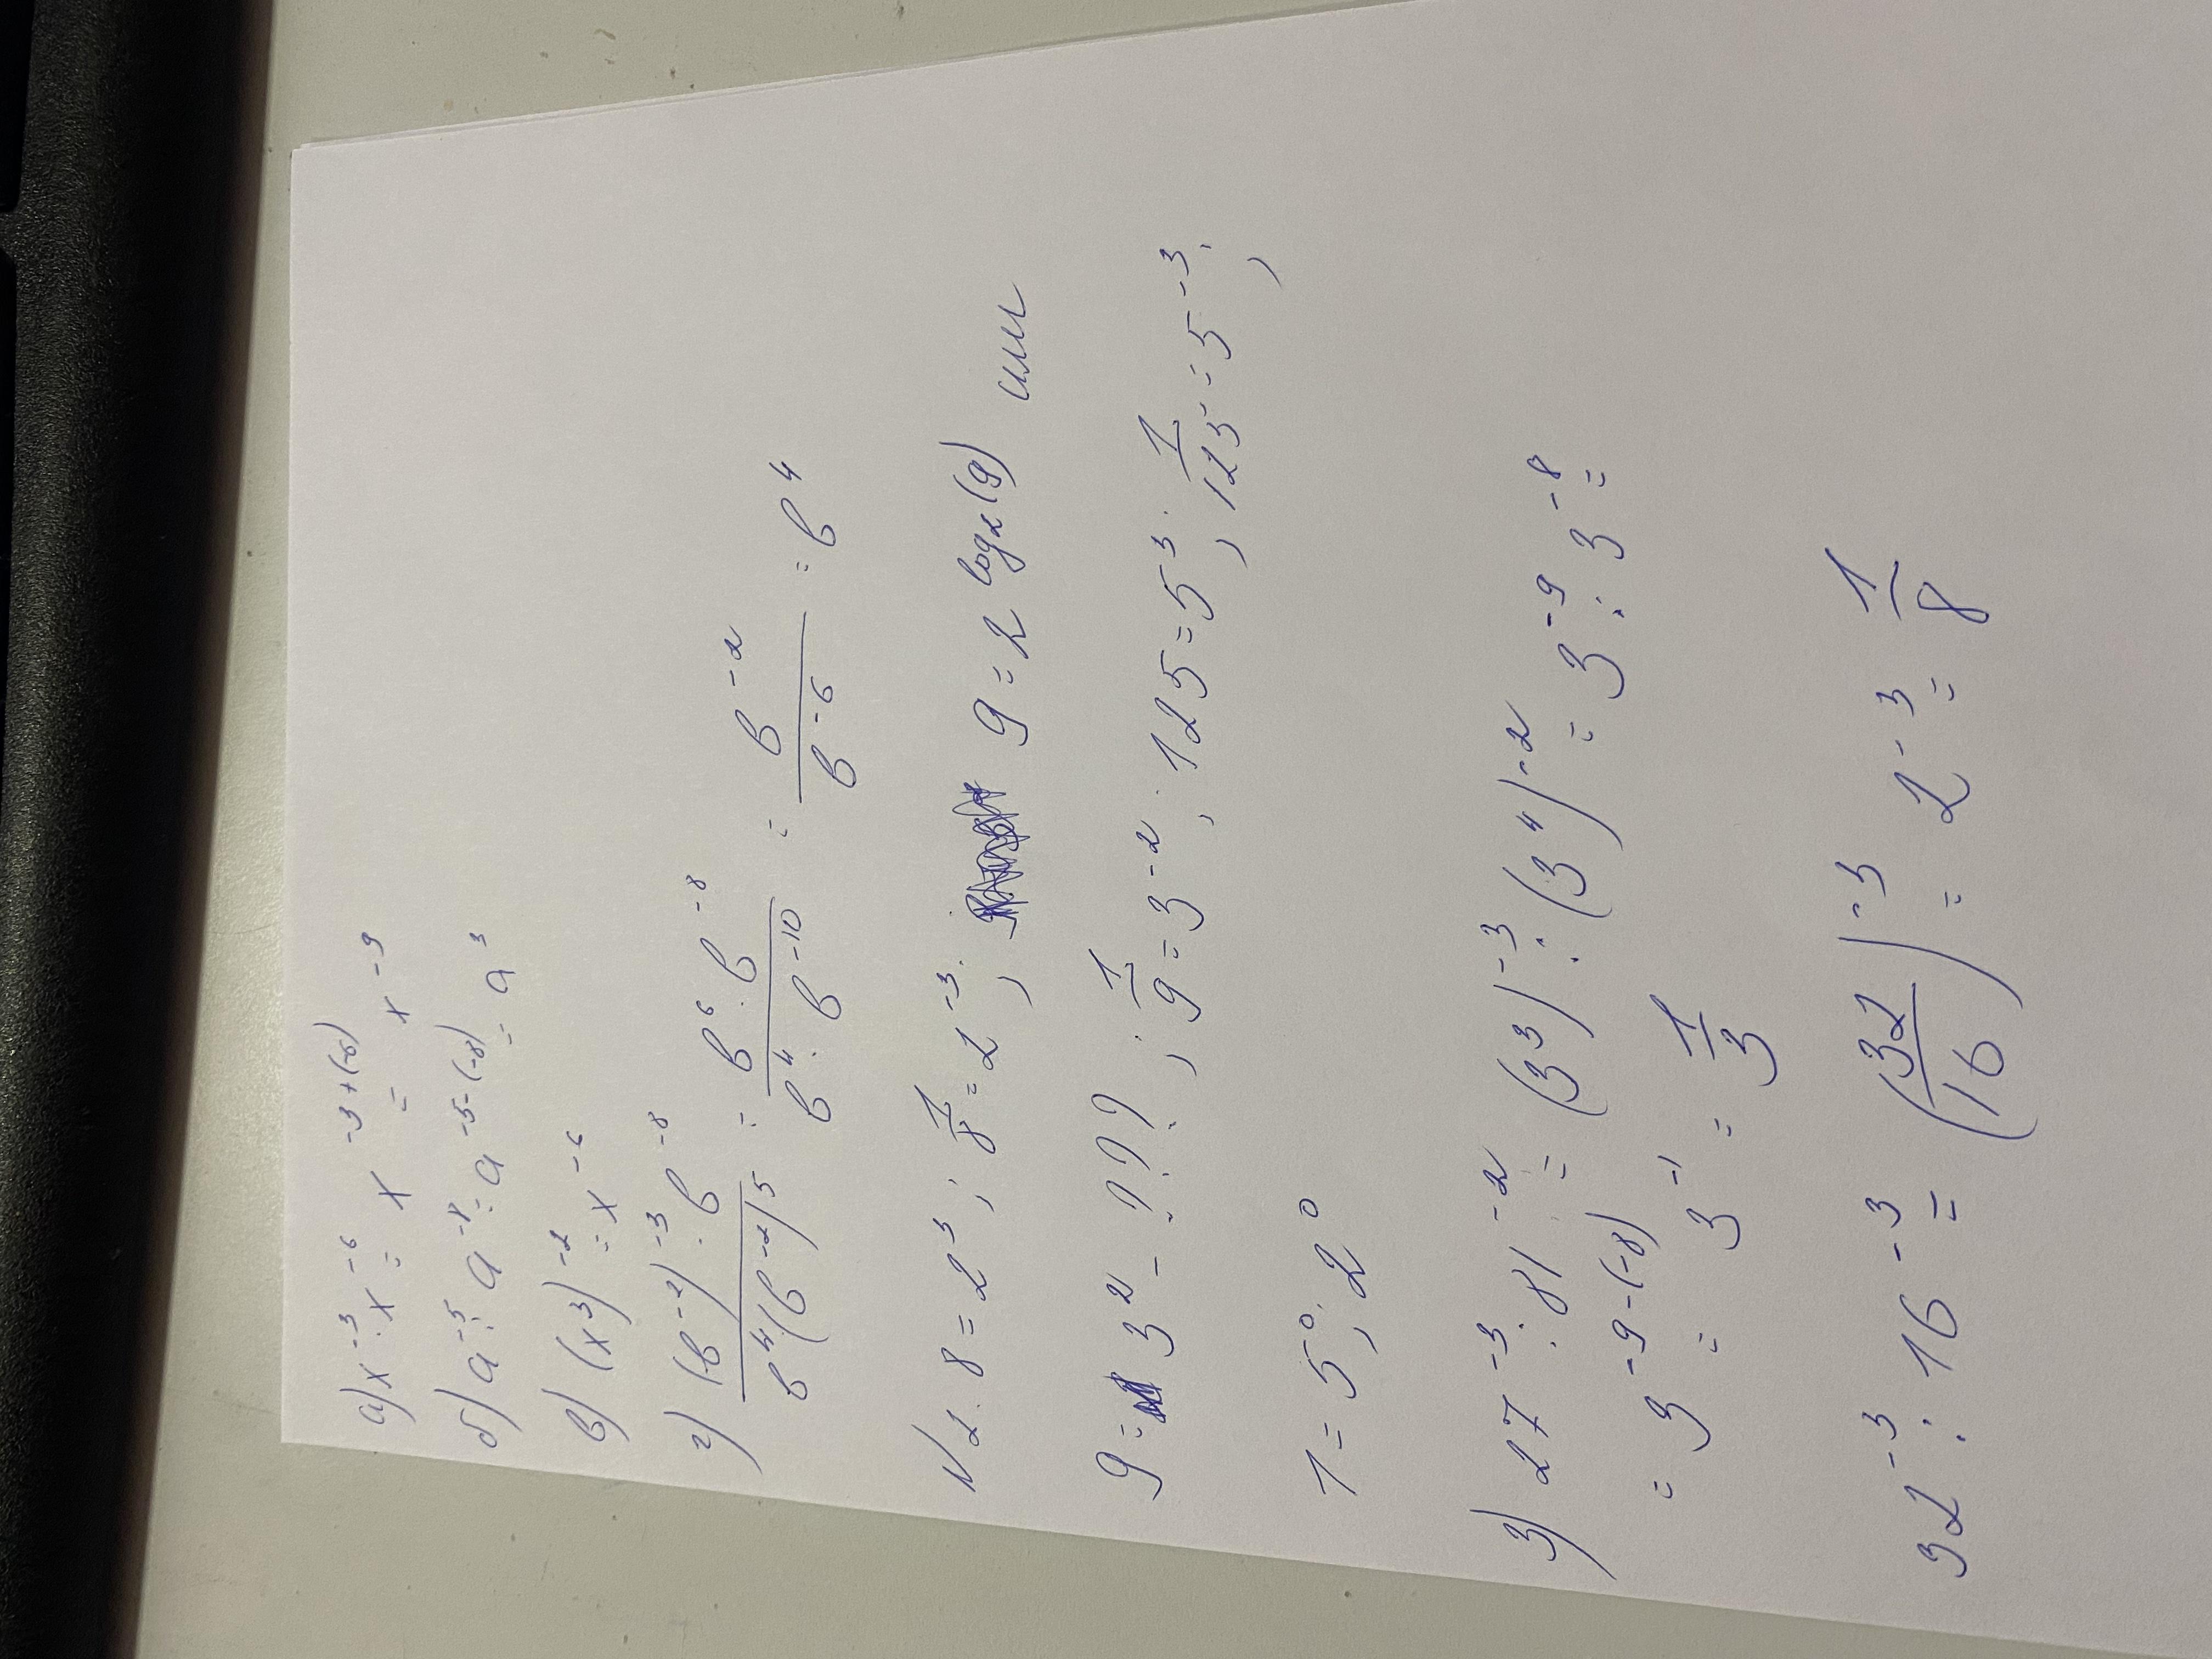 а) x⁻³ · x⁻⁶ = x⁻³⁺⁽⁻⁶⁾ = x⁻⁹
б) a⁻⁵ : a⁻⁸ = a⁻⁵⁻⁽⁻⁸⁾ = a³
в) (x³)⁻² = x⁻⁶
г) (в⁻²)⁻³ · в⁻⁸ / в⁴ · (в⁻²)⁵ = в⁶ · в⁻⁸ / в⁴ · в⁻¹⁰ = в⁻² / в⁻⁶ = в⁴
N2. 8 = 2³ ; 1/8 = 2⁻³ ; 9 = 2 log₂(9) или
9 = 3² - ??? ; 1/9 = 3⁻² ; 125 = 5³ ; 1/125 = 5⁻³ ;
1 = 5⁰ ; 2⁰
3) 27⁻³ : 81⁻² = (3³)⁻³ : (3⁴)⁻² = 3⁻⁹ : 3⁻⁸ =
= 3⁻⁹⁻⁽⁻⁸⁾ = 3⁻¹ = 1/3
32⁻³ : 16⁻³ = (32/16)⁻³ = 2⁻³ = 1/8